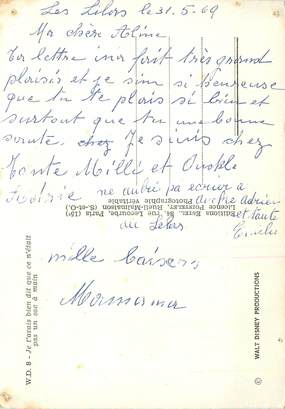 Les Lilas le 31.5.69
Ma chère Aline
Ta lettre m'a fait très grand
plaisir et je sui si heureuse
que tu te plais si bien et
surtout que tu a une bonne
sante. chez Je suis chez
Tante Milli et
ne oublié pa ecrire a
et tante
au Lelas
mille baisers
Editions Kroma, 98, rue Lecourbe, Paris, (15e)
Licence Poissaley, Rueil-Malmaison (S.-et-O.)
Photographie véritable
W.D. 8 - Je t'avais bien dit que ce n'était
pas un sac à main
© WALT DISNEY PRODUCTIONS